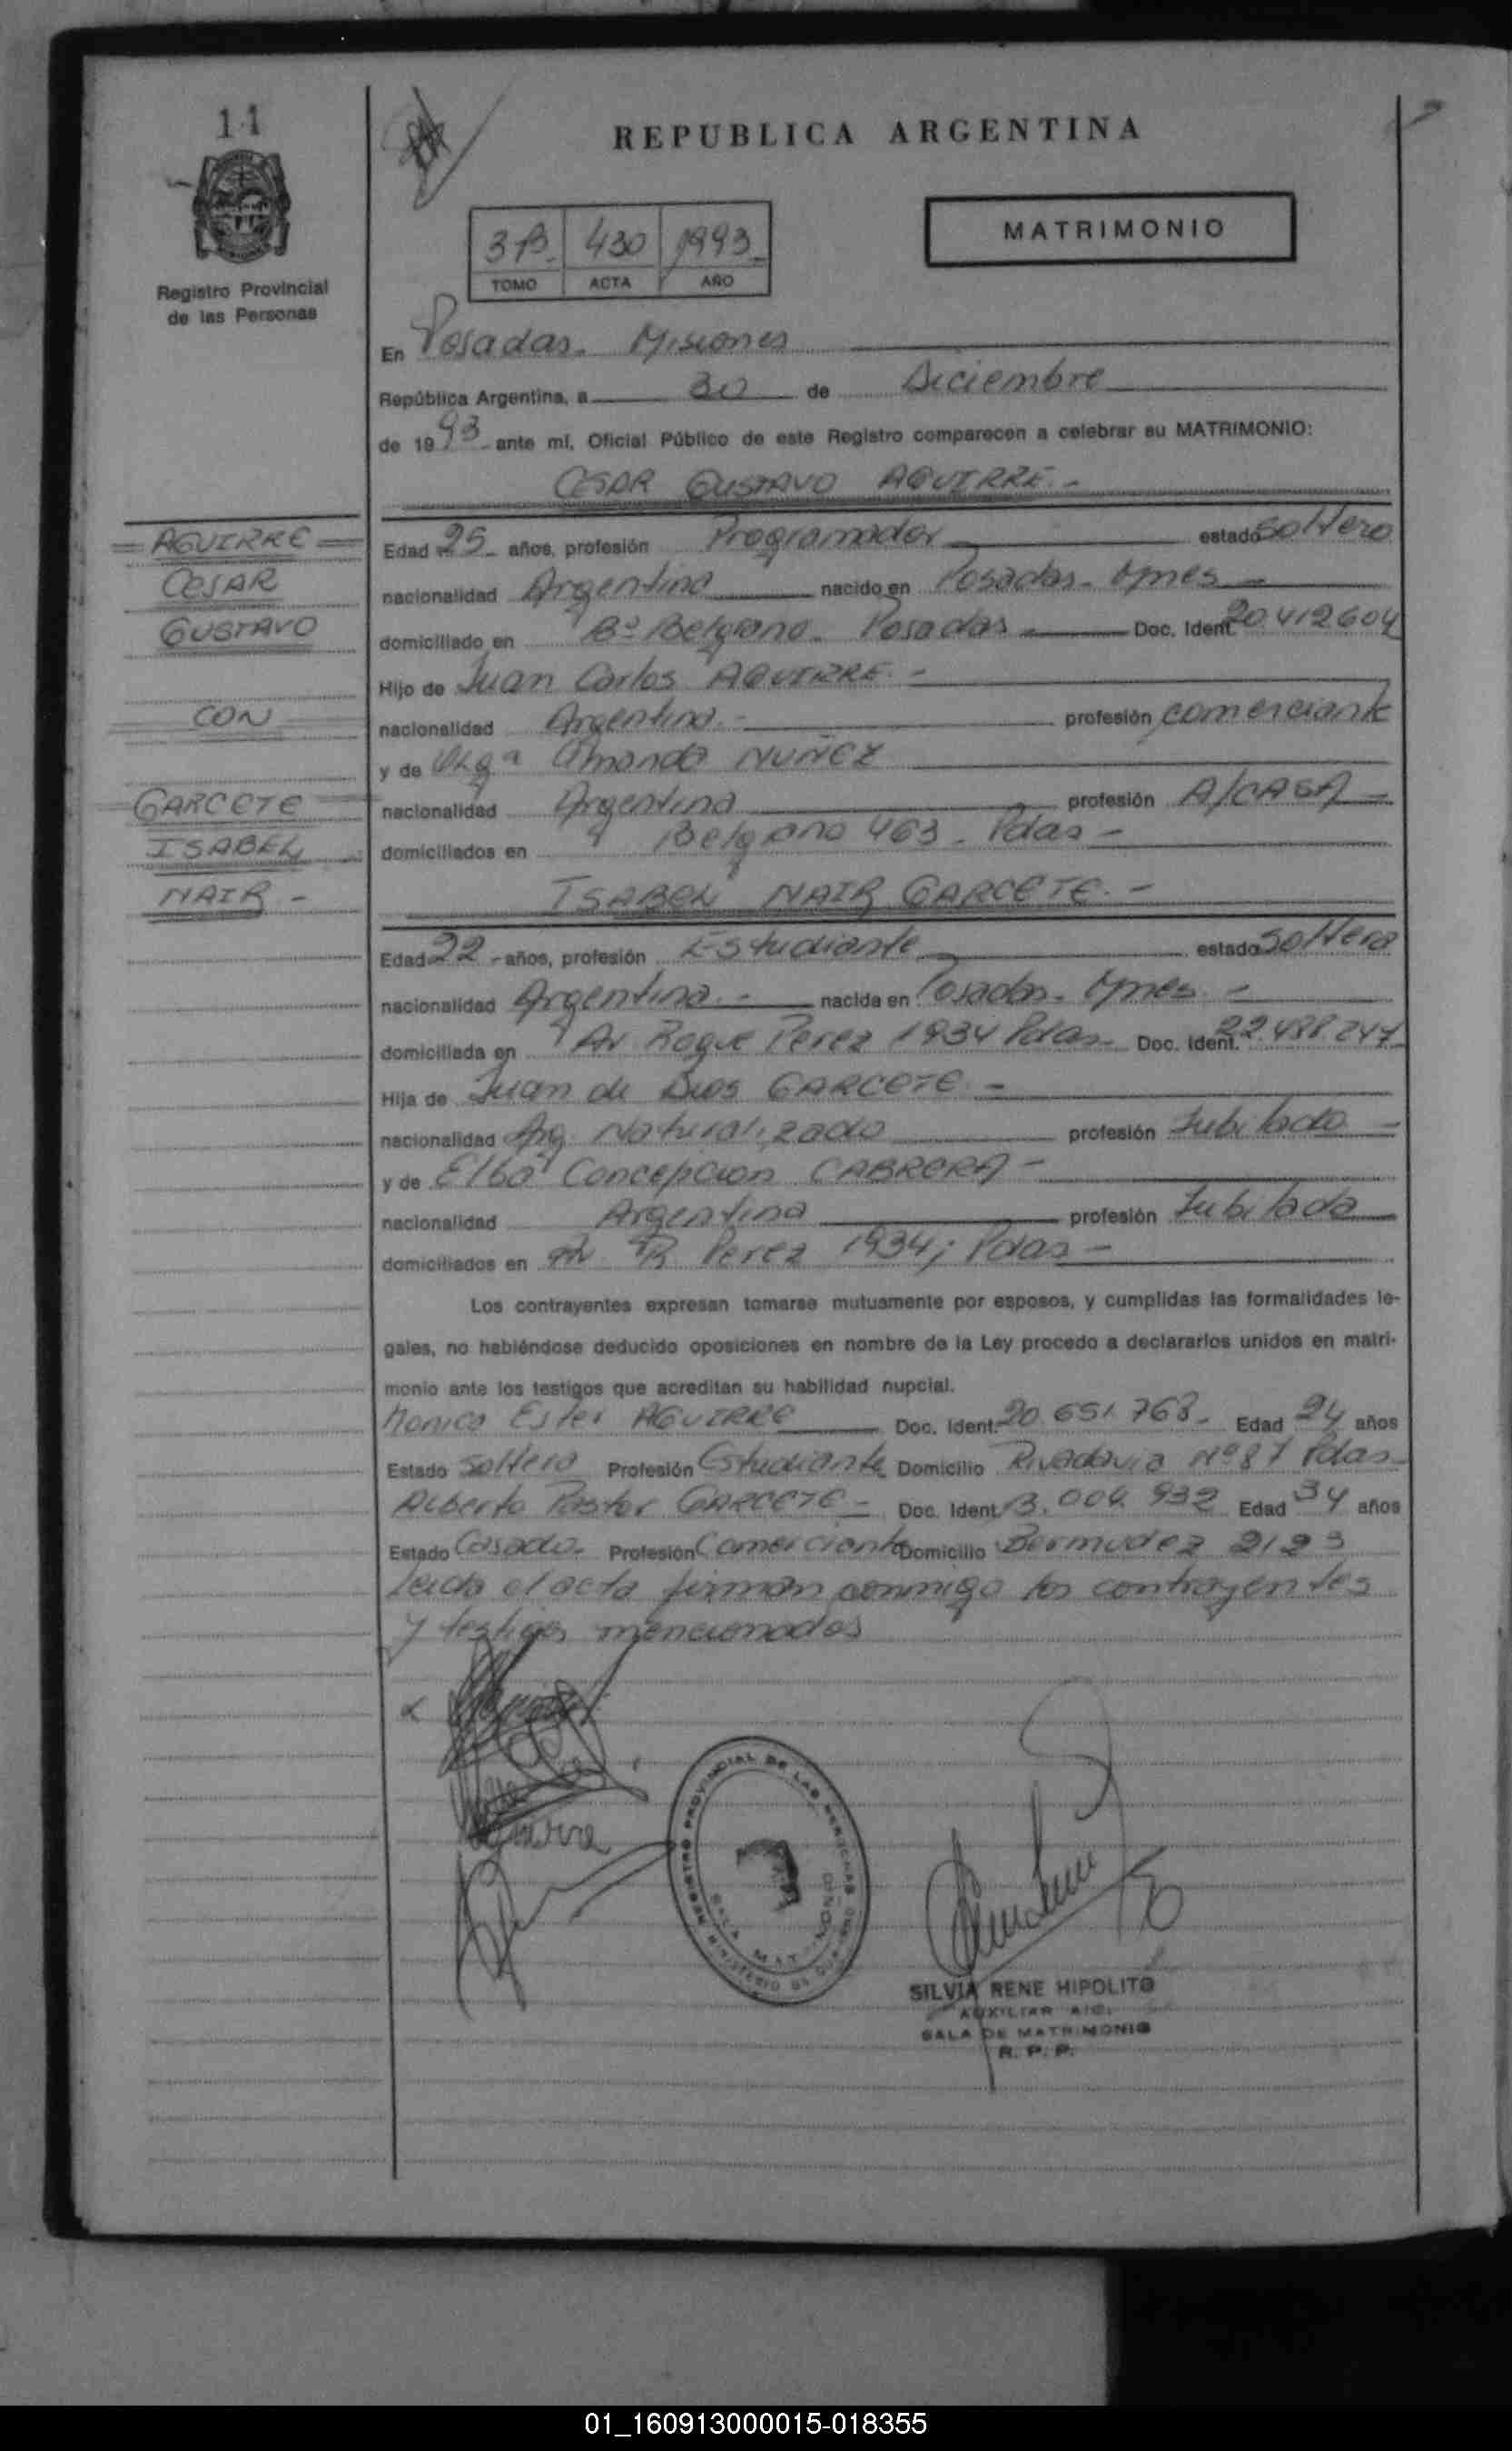 11
REPUBLICA ARGENTINA
MATRIMONIO
3B. 430 1993
TOMO ACTA AÑO
Registro Provincial
de las Personas
En Posadas. Misiones
República Argentina, a 30 de Diciembre
de 1993 ante mí, Oficial Público de este Registro comparecen a celebrar su MATRIMONIO:
CESAR GUSTAVO AGUIRRE.-
AGUIRRE
CESAR
GUSTAVO
CON
GARCETE
ISABEL
NAIR -
Edad 25 años, profesión Programador estado soltero
nacionalidad Argentina nacido en Posadas - Mnes
domiciliado en Bº Belgrano. Posadas Doc. Ident. 20.412604
Hijo de Juan Carlos AGUIRRE.-
nacionalidad Argentina.- profesión comerciante
y de Olga Amanda NUÑEZ
nacionalidad Argentina profesión A/CASA -
domiciliados en Belgrano 463. Pdas -
ISABEL NAIR GARCETE.-
Edad 22 - años, profesión Estudiante estado soltera
nacionalidad Argentina.- nacida en Posadas. Mnes.-
domiciliada en Av Roque Perez 1934 Pdas- Doc. Ident. 22.488.247
Hija de Juan de Dios GARCETE.-
nacionalidad Arg. Naturalizado profesión Jubilado -
y de Elba Concepcion CABRERA -
nacionalidad Argentina profesión Jubilada
domiciliados en Av R Perez 1934; Pdas -
Los contrayentes expresan tomarse mutuamente por esposos, y cumplidas las formalidades le-
gales, no habiéndose deducido oposiciones en nombre de la Ley procedo a declararlos unidos en matri-
monio ante los testigos que acreditan su habilidad nupcial.
Monica Ester AGUIRRE Doc. Ident. 20.651.768- Edad 24 años
Estado soltera Profesión Estudiante Domicilio Rivadavia Nº 87 Pdas-
Alberto Pastor GARCETE - Doc. Ident. 13.004.932 Edad 34 años
Estado Casado. Profesión Comerciante Domicilio Bermudez 2123
Leida el acta firman conmigo los contrayentes
y testigos mencionados
Aguirre
REGISTRO PROVINCIAL DE LAS PERSONAS
MINISTERIO DE
SILVIA RENE HIPOLITO
AUXILIAR
SALA DE MATRIMONIO
R. P. P.
01_160913000015-018355